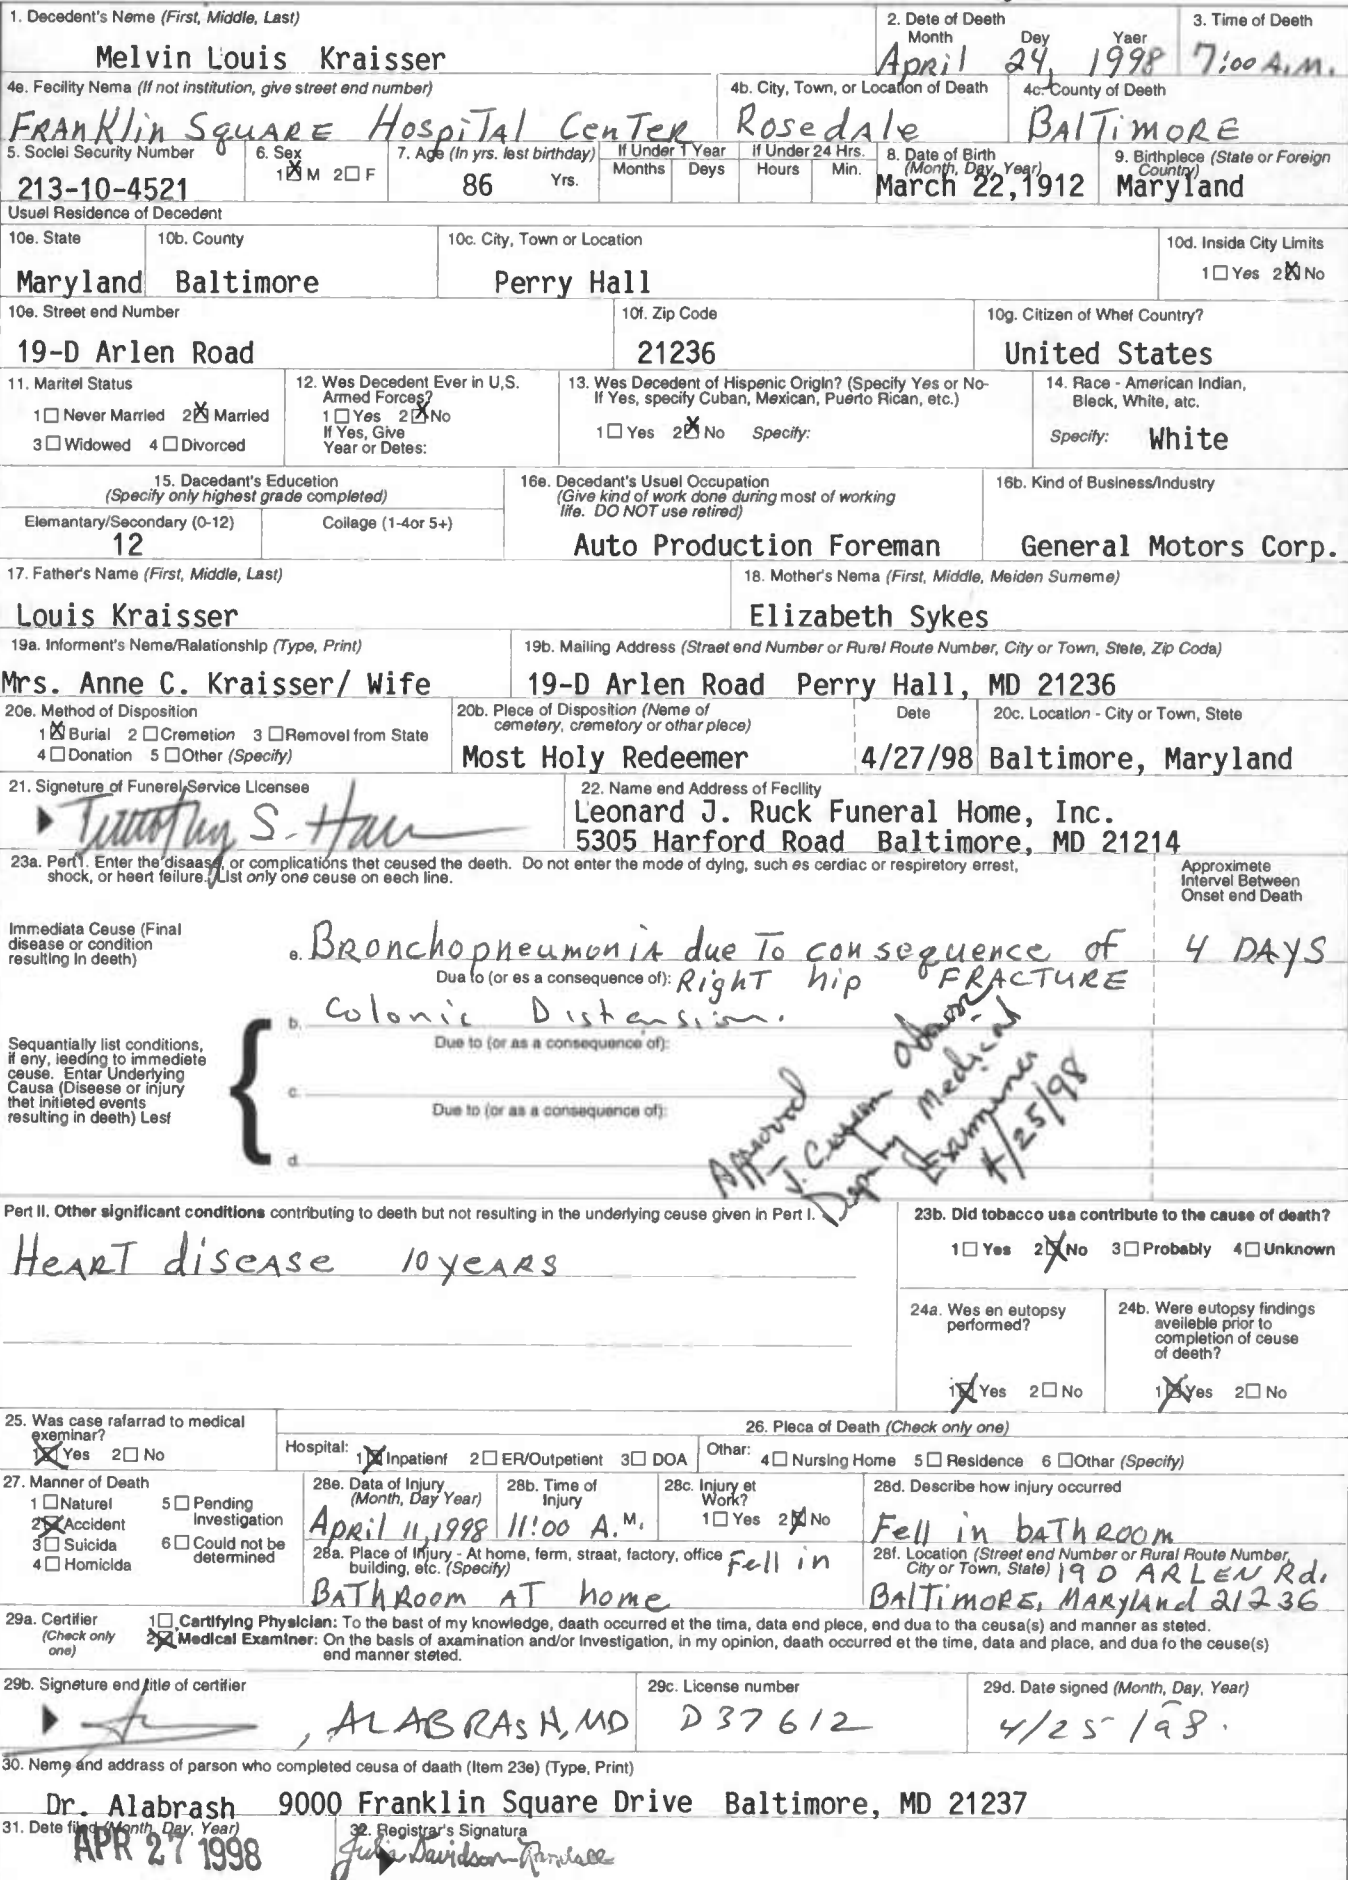 1. Decedent's Name (First, Middle, Last)
Melvin Louis Kraisser
2. Dete of Deeth
Month Dey Yaer
April 24, 1998
3. Time of Deeth
7:00 A.M.
4e. Fecility Nema (If not institution, give street end number)
FRANKlin SQUARE HospiTAl CenTER
4b. City, Town, or Location of Death
Rosedale
4c. County of Deeth
BALTIMORE
5. Soclei Security Number
213-10-4521
6. Sex
1☒M 2☐F
7. Age (In yrs. lest birthday)
86 Yrs.
If Under 1 Year
Months Deys
If Under 24 Hrs.
Hours Min.
8. Date of Birth
(Month, Day, Year)
March 22,1912
9. Birthplece (State or Foreign
Country)
Maryland
Usuel Residence of Decedent
10e. State
Maryland
10b. County
Baltimore
10c. City, Town or Location
Perry Hall
10d. Insida City Limits
1☐Yes 2☒No
10e. Street end Number
19-D Arlen Road
10f. Zip Code
21236
10g. Citizen of Whef Country?
United States
11. Maritel Status
1☐Never Married 2☒Married
3☐Widowed 4☐Divorced
12. Wes Decedent Ever in U,S.
Armed Forces?
1☐Yes 2☒No
If Yes, Give
Year or Detes:
13. Wes Decedent of Hispenic Origin? (Specify Yes or No-
If Yes, specify Cuban, Mexican, Puerto Rican, etc.)
1☐Yes 2☒No Specify:
14. Race - American Indian,
Bleck, White, atc.
Specify: White
15. Dacedant's Education
(Specify only highest grade completed)
Elemantary/Secondary (0-12)
12
Coilage (1-4or 5+)
16e. Decedant's Usuel Occupation
(Give kind of work done during most of working
life. DO NOT use retired)
Auto Production Foreman
16b. Kind of Business/Industry
General Motors Corp.
17. Father's Name (First, Middle, Last)
Louis Kraisser
18. Mother's Nema (First, Middle, Meiden Sumeme)
Elizabeth Sykes
19a. Informent's Neme/Ralationship (Type, Print)
Mrs. Anne C. Kraisser/ Wife
19b. Mailing Address (Straet end Number or Rurel Route Number, City or Town, Stete, Zip Coda)
19-D Arlen Road Perry Hall, MD 21236
20e. Method of Disposition
1☒Burial 2☐Cremetion 3☐Removel from State
4☐Donation 5☐Other (Specify)
20b. Plece of Disposition (Neme of
cemetery, cremetory or othar plece)
Most Holy Redeemer
Dete
4/27/98
20c. Location - City or Town, Stete
Baltimore, Maryland
21. Signeture of Funerel Service Licensee
Timothy S.
22. Name end Address of Fecility
Leonard J. Ruck Funeral Home, Inc.
5305 Harford Road Baltimore, MD 21214
23a. Pert I. Enter the disaase, or complications thet ceused the deeth. Do not enter the mode of dying, such es cerdiac or respiretory errest,
shock, or heert feilure. List only one ceuse on eech line.
Approximete
Intervel Between
Onset end Death
Immediata Ceuse (Final
disease or condition
resulting in death)
e. BRONChopneumoniA due To consequence of
4 DAYS
Dua to (or es a consequence of): RighT hip FRACTURE
b. Colonic Distension.
Due to (or as a consequence of):
Sequantially list conditions,
if eny, leeding to immediete
ceuse. Entar Underlying
Causa (Diseese or injury
thet initieted events
resulting in deeth) Lesf
c.
Due to (or as a consequence of):
d.
Approved
J.
Deputy Medical
Examiner
4/25/98
Pert II. Other significant conditions contributing to deeth but not resulting in the underlying ceuse given in Pert I.
HeART diseASe 10 yeARS
23b. Did tobacco usa contribute to the cause of death?
1☐Yes 2☒No 3☐Probably 4☐Unknown
24a. Wes en eutopsy
performed?
1☒Yes 2☐No
24b. Were eutopsy findings
aveileble prior to
completion of ceuse
of deeth?
1☒Yes 2☐No
25. Was case rafarrad to medical
exeminar?
1☒Yes 2☐No
26. Pleca of Death (Check only one)
Hospital: 1☒Inpatienf 2☐ER/Outpetient 3☐DOA
Othar: 4☐Nursing Home 5☐Residence 6☐Othar (Specify)
27. Manner of Death
1☐Naturel 5☐Pending
Investigation
2☒Accident
3☐Suicida 6☐Could not be
determined
4☐Homicida
28e. Data of Injury
(Month, Day Year)
April 11, 1998
28b. Time of
Injury
11:00 A.M.
28c. Injury et
Work?
1☐Yes 2☒No
28d. Describe how injury occurred
Fell in bAThROOM
28a. Place of Injury - At home, ferm, straat, factory, office
building, etc. (Specify)
Fell in
BAThRoom AT home
28f. Location (Street end Number or Rural Route Number,
City or Town, State)
19D ARLEN Rd.
BALTIMORE, MARyland 21236
29a. Certifier
(Check only
one)
1☐ Cartifying Physician: To the bast of my knowledge, daath occurred et the tima, data end plece, end due to tha ceusa(s) and manner as steted.
2☒ Medical Examiner: On the basis of axamination and/or Investigation, in my opinion, daath occurred et the time, data and place, and dua fo the ceuse(s)
end manner steted.
29b. Signeture end title of certifier
, ALABRASH, MD
29c. License number
D37612
29d. Date signed (Month, Day, Year)
4/25/98.
30. Neme and addrass of parson who completed ceusa of daath (Item 23e) (Type, Print)
Dr. Alabrash 9000 Franklin Square Drive Baltimore, MD 21237
31. Dete filed (Month, Day, Year)
APR 27 1998
32. Registrar's Signatura
Julia Davidson-Randall